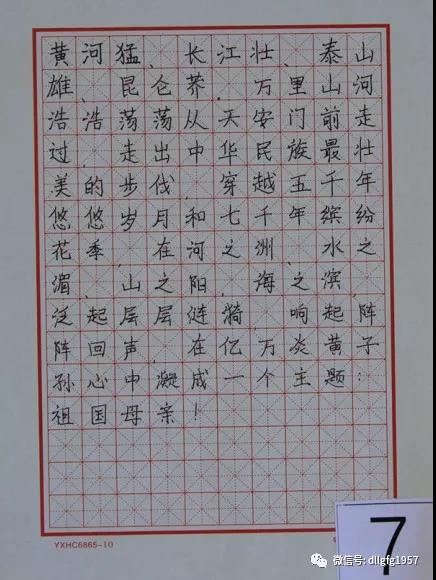 黄河猛、长江壮、泰山
雄、昆仑莽.万里山河
浩浩荡荡从天安门前走
过.走出中华民族最壮
美的步伐.穿越五千年
悠悠岁月.和七千年缤纷
花季.在河之洲、水之
湄、山之阳.海之滨、
泛起层层涟漪.响起阵
阵回声.在亿万炎黄子
孙心中凝成一个主题:
祖国母亲!
YXHC6865-10
7
微信号: dllgfg1957